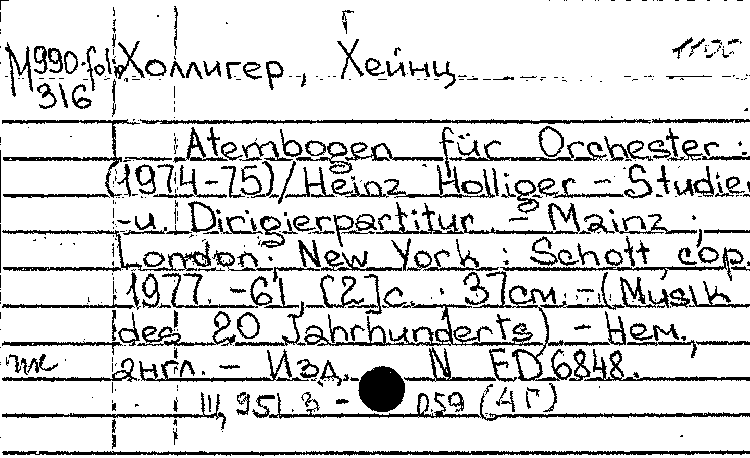 Г
М990.folio Холлигер, Хейнц 1100
316
Atembogen für Orchester :
(1974-75)/Heinz Holliger - Studie
-u. Dirigierpartitur. - Mainz ;
London ; New York : Schott cop.
1977. - 61, [2]с. ; 37см. - (Musik
des 20 Jahrhunderts) - Нем.,
англ. - Изд. N ED 6848.
Ш, 951.3 - 059 (4 Г)